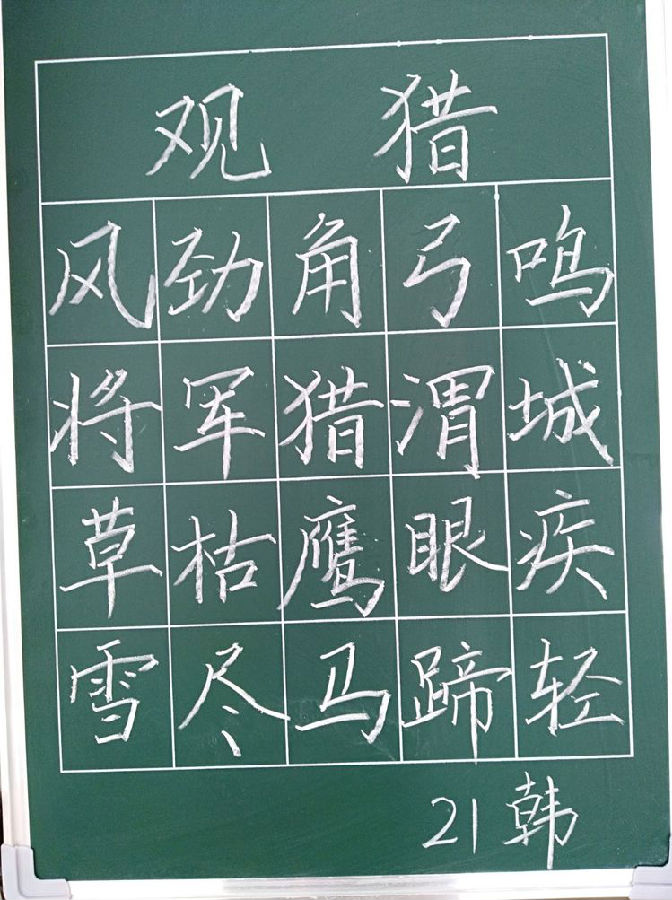 观猎
风劲角弓鸣
将军猎渭城
草枯鹰眼疾
雪尽马蹄轻
21韩